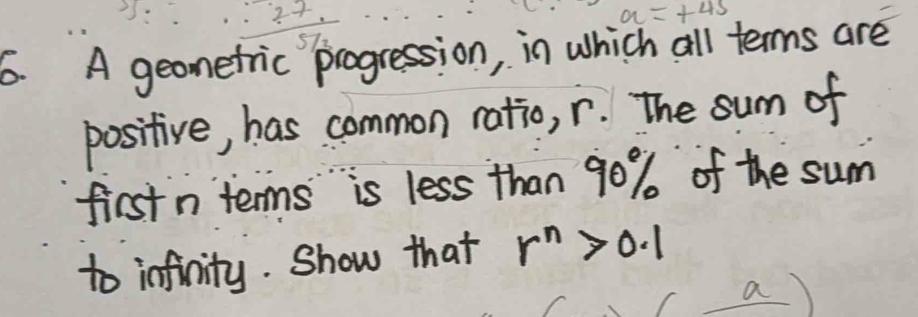 27
57
a = +45
6. A geometric progression, in which all terms are
positive, has common ratio, r. The sum of
first n terms is less than 90% of the sum
to infinity. Show that rⁿ > 0.1
a